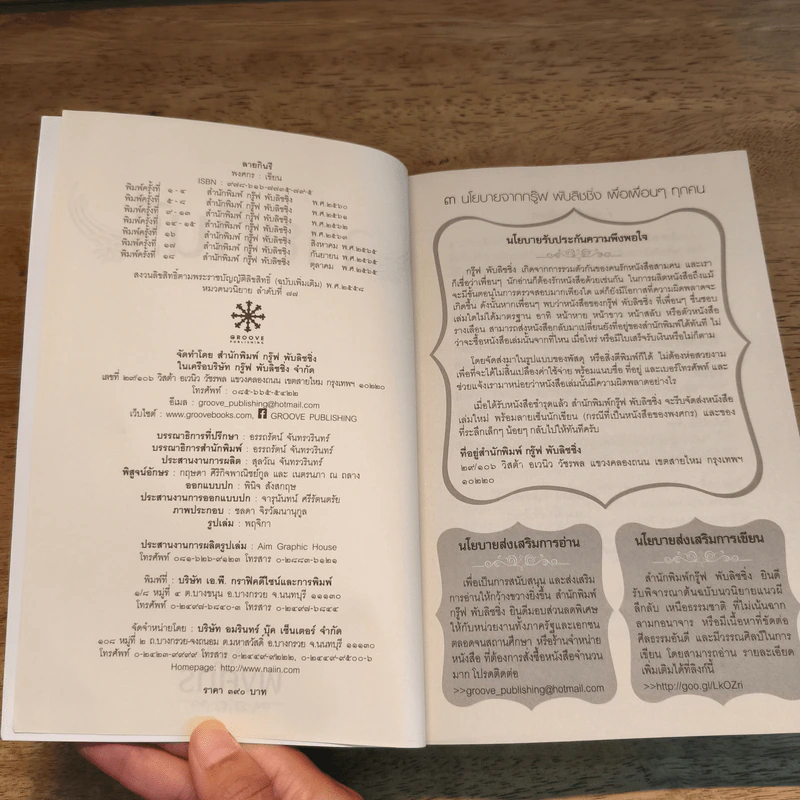 ลายกินรี
พงศกร : เขียน
ISBN : ๙๗๘-๖๑๖-๗๗๓๕-๗๙-๕
พิมพ์ครั้งที่ ๑ - ๔ สำนักพิมพ์ กรู๊ฟ พับลิชชิ่ง พ.ศ.๒๕๖๐
พิมพ์ครั้งที่ ๕ - ๘ สำนักพิมพ์ กรู๊ฟ พับลิชชิ่ง พ.ศ.๒๕๖๑
พิมพ์ครั้งที่ ๙ - ๑๓ สำนักพิมพ์ กรู๊ฟ พับลิชชิ่ง พ.ศ.๒๕๖๒
พิมพ์ครั้งที่ ๑๔ - ๑๕ สำนักพิมพ์ กรู๊ฟ พับลิชชิ่ง พ.ศ.๒๕๖๓
พิมพ์ครั้งที่ ๑๖ สำนักพิมพ์ กรู๊ฟ พับลิชชิ่ง สิงหาคม พ.ศ.๒๕๖๕
พิมพ์ครั้งที่ ๑๗ สำนักพิมพ์ กรู๊ฟ พับลิชชิ่ง กันยายน พ.ศ.๒๕๖๕
พิมพ์ครั้งที่ ๑๘ สำนักพิมพ์ กรู๊ฟ พับลิชชิ่ง ตุลาคม พ.ศ.๒๕๖๕
สงวนลิขสิทธิ์ตามพระราชบัญญัติลิขสิทธิ์ (ฉบับเพิ่มเติม) พ.ศ.๒๕๕๘
หมวดนวนิยาย ลำดับที่ ๗๗
GROOVE
PUBLISHING
จัดทำโดย สำนักพิมพ์ กรู๊ฟ พับลิชชิ่ง
ในเครือบริษัท กรู๊ฟ พับลิชชิ่ง จำกัด
เลขที่ ๒๙/๑๐๖ วิสต้า อเวนิว วัชรพล แขวงคลองถนน เขตสายไหม กรุงเทพฯ ๑๐๒๒๐
โทรศัพท์ : ๐๘๕-๖๖๕-๕๔๒๒
อีเมล : groove_publishing@hotmail.com
เว็บไซต์ : www.groovebooks.com, GROOVE PUBLISHING
บรรณาธิการที่ปรึกษา : อรรถรัตน์ จันทรวรินทร์
บรรณาธิการสำนักพิมพ์ : อรรถรัตน์ จันทรวรินทร์
ประสานงานการผลิต : สุลวัณ จันทรวรินทร์
พิสูจน์อักษร : กฤษดา ศิริกิจพาณิชย์กูล และ เนตรนภา ณ ถลาง
ออกแบบปก : พินิจ สังสกฤษ
ประสานงานการออกแบบปก : จารุนันทน์ ศรีรัตนตรัย
ภาพประกอบ : ชลดา จิรวัฒนานุกูล
รูปเล่ม : พฤจิกา
ประสานงานการผลิตรูปเล่ม : Aim Graphic House
โทรศัพท์ ๐๘๑-๖๒๖-๙๑๒๓ โทรสาร ๐-๒๘๘๓-๖๑๒๑
พิมพ์ที่ : บริษัท เอ.พี. กราฟิคดีไซน์และการพิมพ์
๑/๘ หมู่ที่ ๔ ต.บางขนุน อ.บางกรวย จ.นนทบุรี ๑๑๑๓๐
โทรศัพท์ ๐-๒๔๙๗-๖๘๔๐-๓ โทรสาร ๐-๒๔๙๗-๖๘๔๕
จัดจำหน่ายโดย : บริษัท อมรินทร์ บุ๊ค เซ็นเตอร์ จำกัด
๑๐๘ หมู่ที่ ๒ ถ.บางกรวย-จงถนอม ต.มหาสวัสดิ์ อ.บางกรวย จ.นนทบุรี ๑๑๑๓๐
โทรศัพท์ ๐-๒๔๒๓-๙๙๙๙ โทรสาร ๐-๒๔๔๙-๙๒๒๒, ๐-๒๔๔๙-๙๕๐๐-๖
Homepage: http://www.naiin.com
ราคา ๓๙๐ บาท
๓ นโยบายจากกรู๊ฟ พับลิชชิ่ง เพื่อเพื่อนๆ ทุกคน
นโยบายรับประกันความพึงพอใจ
กรู๊ฟ พับลิชชิ่ง เกิดจากการรวมตัวกันของคนรักหนังสือสามคน และเรา
ก็เชื่อว่าเพื่อนๆ นักอ่านก็ต้องรักหนังสือด้วยเช่นกัน ในการผลิตหนังสือถึงแม้
จะมีขั้นตอนในการตรวจสอบมากเพียงใด แต่ก็ยังมีโอกาสที่ความผิดพลาดจะ
เกิดขึ้น ดังนั้นหากเพื่อนๆ พบว่าหนังสือของกรู๊ฟ พับลิชชิ่ง ที่เพื่อนๆ ชื่นชอบ
เล่มใดไม่ได้มาตรฐาน อาทิ หน้าหาย หน้าขาว หน้าสลับ หรือตัวหนังสือ
รางเลือน สามารถส่งหนังสือกลับมาเปลี่ยนยังที่อยู่ของสำนักพิมพ์ได้ทันที ไม่
ว่าจะซื้อหนังสือเล่มนั้นจากที่ไหน เมื่อไหร่ หรือมีใบเสร็จรับเงินหรือไม่ก็ตาม
โดยจัดส่งมาในรูปแบบของพัสดุ หรือสิ่งตีพิมพ์ก็ได้ ไม่ต้องห่อสวยงาม
เพื่อที่จะได้ไม่สิ้นเปลืองค่าใช้จ่าย พร้อมแนบชื่อ ที่อยู่ และเบอร์โทรศัพท์ และ
ช่วยแจ้งเรามาหน่อยว่าหนังสือเล่มนั้นมีความผิดพลาดอย่างไร
เมื่อได้รับหนังสือชำรุดแล้ว สำนักพิมพ์กรู๊ฟ พับลิชชิ่ง จะรีบจัดส่งหนังสือ
เล่มใหม่ พร้อมลายเซ็นนักเขียน (กรณีที่เป็นหนังสือของพงศกร) และของ
ที่ระลึกเล็กๆ น้อยๆ กลับไปให้ทันทีครับ
ที่อยู่สำนักพิมพ์ กรู๊ฟ พับลิชชิ่ง
๒๙/๑๐๖ วิสต้า อเวนิว วัชรพล แขวงคลองถนน เขตสายไหม กรุงเทพฯ
๑๐๒๒๐
นโยบายส่งเสริมการอ่าน
เพื่อเป็นการสนับสนุน และส่งเสริม
การอ่านให้กว้างขวางยิ่งขึ้น สำนักพิมพ์
กรู๊ฟ พับลิชชิ่ง ยินดีมอบส่วนลดพิเศษ
ให้กับหน่วยงานทั้งภาครัฐและเอกชน
ตลอดจนสถานศึกษา หรือร้านจำหน่าย
หนังสือ ที่ต้องการสั่งซื้อหนังสือจำนวน
มาก โปรดติดต่อ
>>groove_publishing@hotmail.com
นโยบายส่งเสริมการเขียน
สำนักพิมพ์กรู๊ฟ พับลิชชิ่ง ยินดี
รับพิจารณาต้นฉบับนวนิยายแนวผี
ลึกลับ เหนือธรรมชาติ ที่ไม่เน้นฉาก
ลามกอนาจาร หรือมีเนื้อหาที่ขัดต่อ
ศีลธรรมอันดี และมีวรรณศิลป์ในการ
เขียน โดยสามารถอ่าน รายละเอียด
เพิ่มเติมได้ที่ลิงก์นี้
>>http://goo.gl/LkOZri